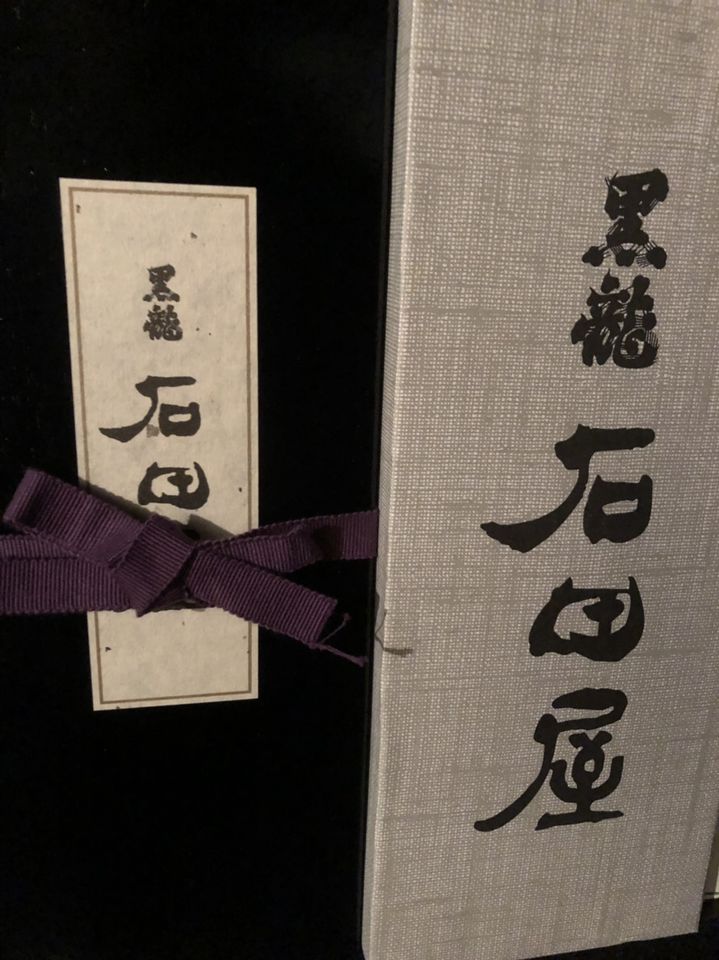 黒龍
石田
黒龍
石田屋